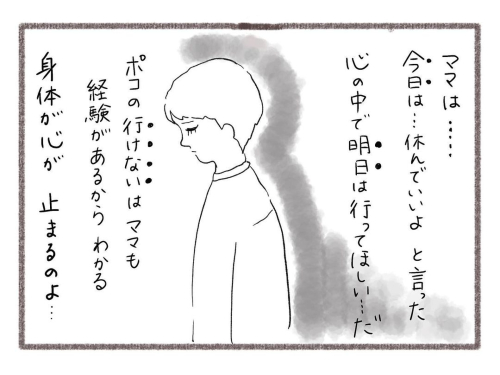 ママは……
今日は…休んでいいよ と言った
心の中で明日は行ってほしい…だ
ポコの行けないはママも
経験があるから わかる
身体が心が 止まるのよ…